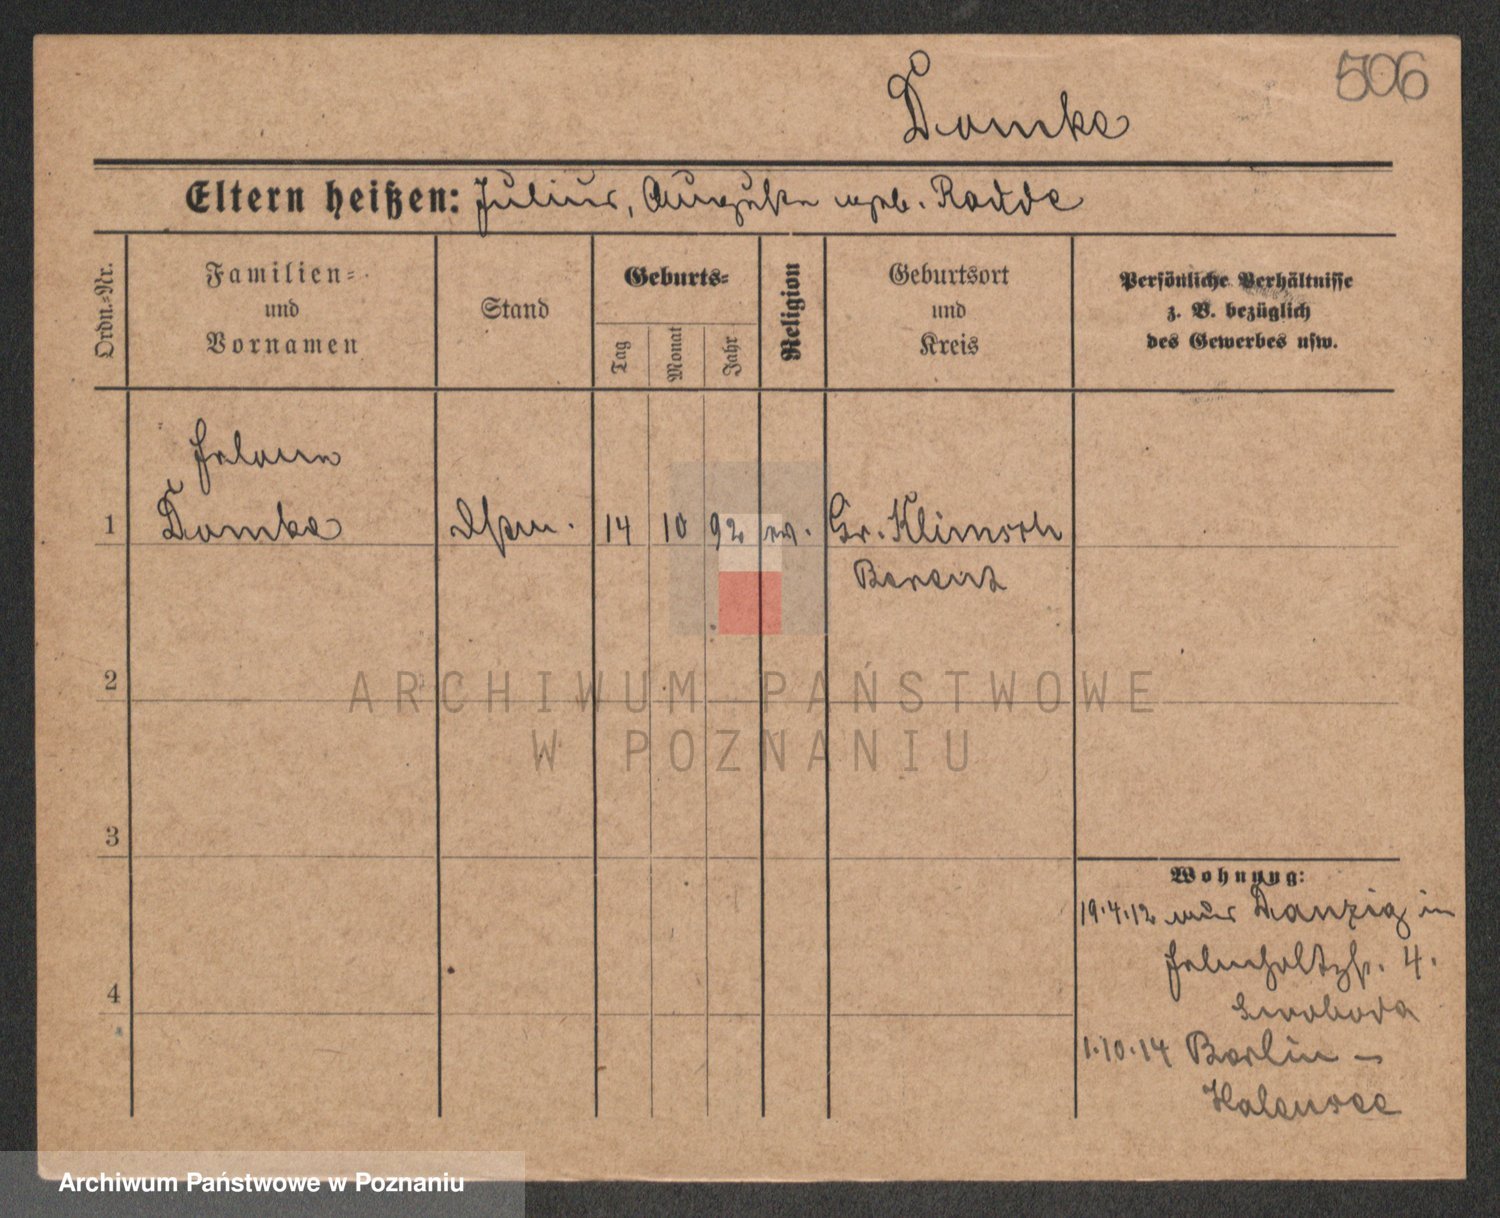 506
Domke
Eltern heißen: Julius, Auguste geb. Radde
Ordn.-Nr.
Familien-
und
Vornamen
Stand
Geburts-
Tag
Monat
Jahr
Religion
Geburtsort
und
Kreis
Persönliche Verhältnisse
z. B. bezüglich
des Gewerbes usw.
Helene
1 Domke 14 10 92 ev. Gr. Klinsch
Berent
2
ARCHIWUM PAŃSTWOWE
W POZNANIU
3
Wohnung:
19.4.12 aus Danzig in
4. 
4
Swoboda
1.10.14 Berlin –
Halensee
Archiwum Państwowe w Poznaniu